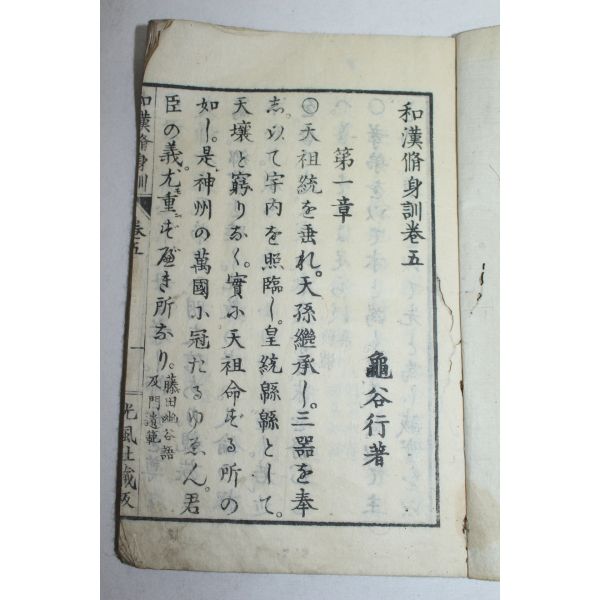 和漢脩身訓巻五
龜谷行著
第一章
天祖統を垂れ。天孫繼承し。三器を奉
し。以て宇内を照臨し。皇統緜緜として。
天壤と窮りなく。實に天祖命ずる所の
如し。是神州の萬國に冠たるゆゑん。君
臣の義。尤重ずべき所なり。
藤田幽谷語
及門遺範
和漢脩身訓
巻五
一
光風社蔵版